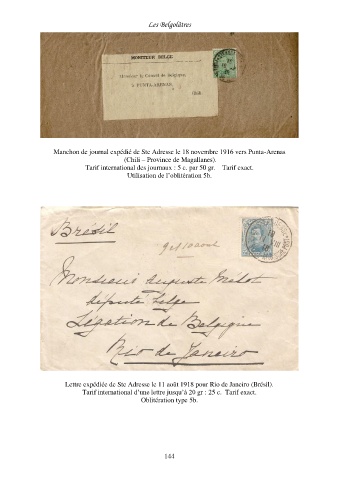 Les Belgolâtres
MONITEUR BELGE
Monsieur le Consul de Belgique
à PUNTA-ARENAS
Chili
Manchon de journal expédié de Ste Adresse le 18 novembre 1916 vers Punta-Arenas
(Chili – Province de Magallanes).
Tarif international des journaux : 5 c. par 50 gr. Tarif exact.
Utilisation de l'oblitération 5b.
Brésil
Monsieur Auguste
député belge
Légation de Belgique
Rio de Janeiro
Lettre expédiée de Ste Adresse le 11 août 1918 pour Rio de Janeiro (Brésil).
Tarif international d'une lettre jusqu'à 20 gr : 25 c. Tarif exact.
Oblitération type 5b.
144